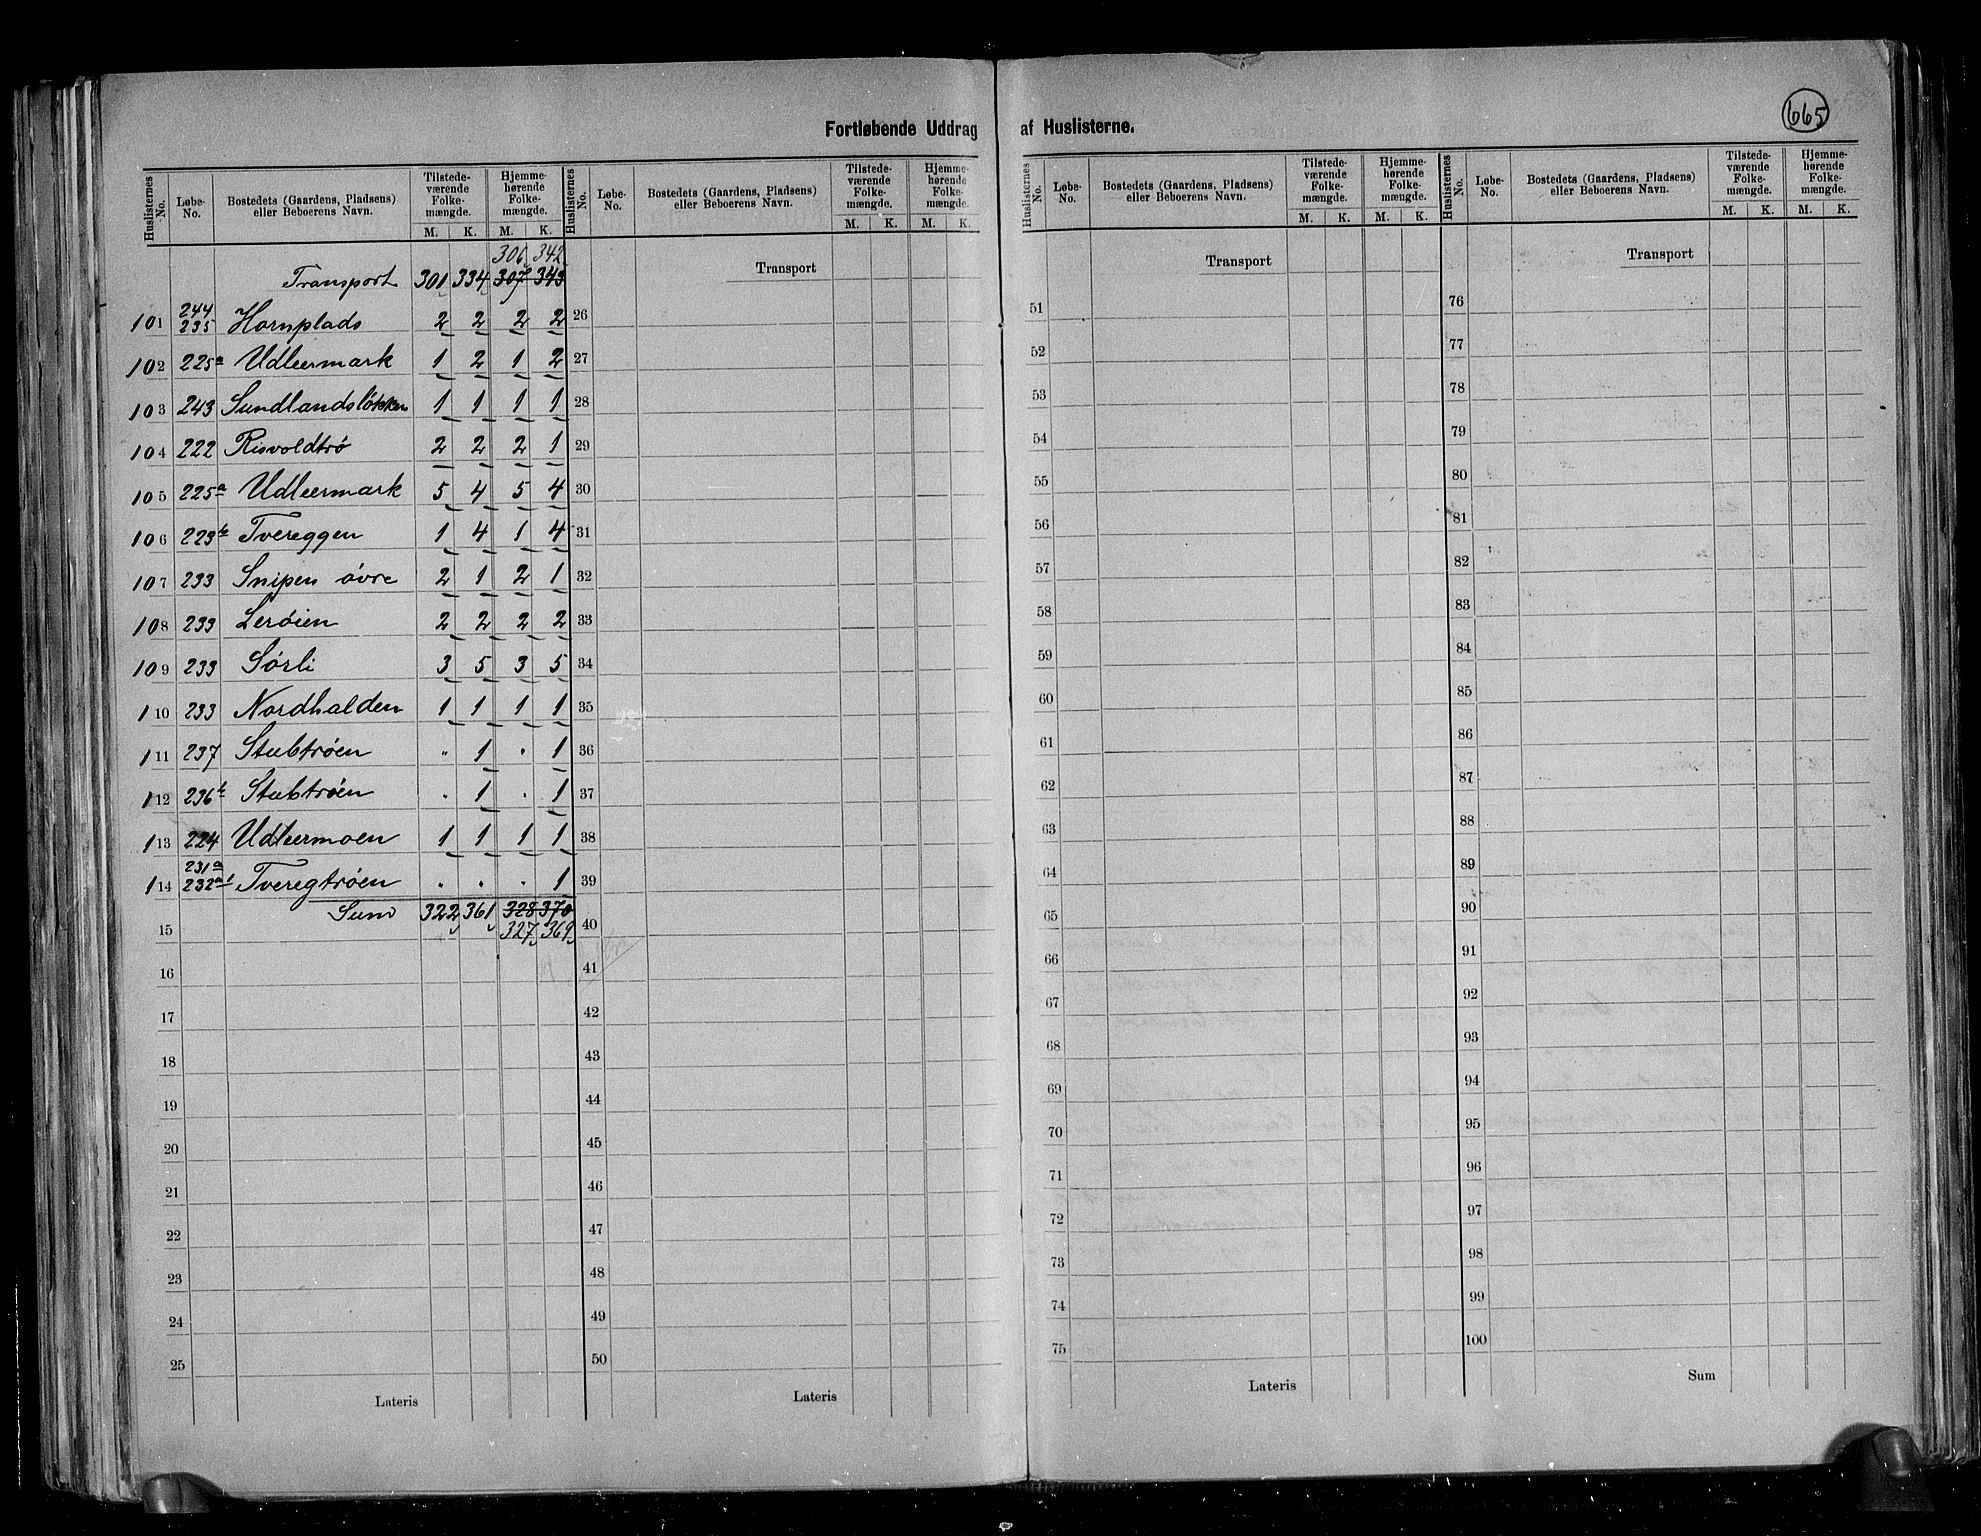 665
Fortløbende Uddrag af Huslisterne.
Huslisternes No. | Løbe-No. | Bostedets (Gaardens, Pladsens) eller Beboerens Navn. | Tilstedeværende Folkemængde. M. K. | Hjemmehørende Folkemængde. M. K.
306 342
Transport 301 334 307 343
101 244 235 Hornplads 2 2 2 2
102 225a Udleermark 1 2 1 2
103 243 Sundlandsløkken 1 1 1 1
104 222 Risvoldtrø 2 2 2 1
105 225a Udleermark 5 4 5 4
106 223b Tvereggen 1 4 1 4
107 233 Snipen øvre 2 1 2 1
108 233 Lerøien 2 2 2 2
109 233 Sørli 3 5 3 5
110 233 Nordhalden 1 1 1 1
111 237 Stubtrøen " 1 " 1
112 236b Stubtrøen " 1 " 1
113 224 Udleermoen 1 1 1 1
114 231a 232a1 Tveregtrøen " " " 1
Sum 322 361 328 370
15 327 369
16
17
18
19
20
21
22
23
24
25
Lateris
Huslisternes No. | Løbe-No. | Bostedets (Gaardens, Pladsens) eller Beboerens Navn. | Tilstedeværende Folkemængde. M. K. | Hjemmehørende Folkemængde. M. K.
Transport
26
27
28
29
30
31
32
33
34
35
36
37
38
39
40
41
42
43
44
45
46
47
48
49
50
Lateris
Huslisternes No. | Løbe-No. | Bostedets (Gaardens, Pladsens) eller Beboerens Navn. | Tilstedeværende Folkemængde. M. K. | Hjemmehørende Folkemængde. M. K.
Transport
51
52
53
54
55
56
57
58
59
60
61
62
63
64
65
66
67
68
69
70
71
72
73
74
75
Lateris
Huslisternes No. | Løbe-No. | Bostedets (Gaardens, Pladsens) eller Beboerens Navn. | Tilstedeværende Folkemængde. M. K. | Hjemmehørende Folkemængde. M. K.
Transport
76
77
78
79
80
81
82
83
84
85
86
87
88
89
90
91
92
93
94
95
96
97
98
99
100
Sum